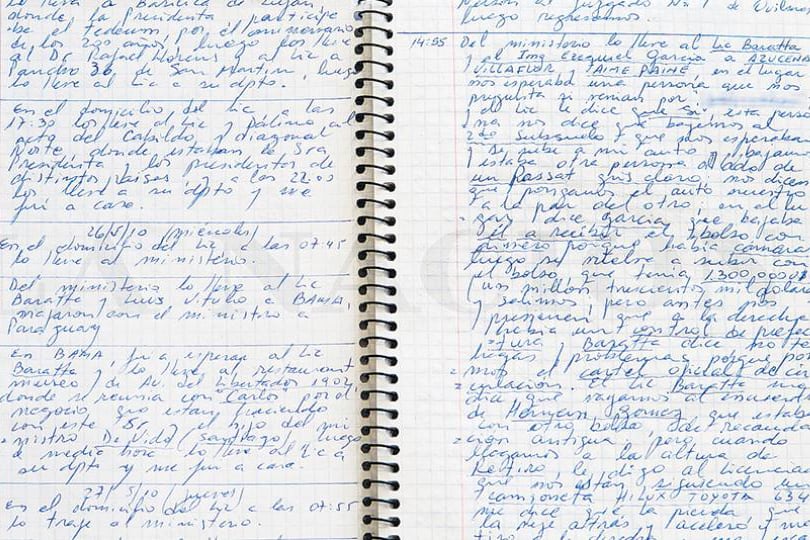 lo lleve a Basílica de Luján,
donde la Presidenta participe
de el tedeum, por el aniversario
de los 200 años, luego los lleve
al Dr. Rafael Llorens y al Lic a
Pancho 36 de San Martín, luego
lo lleve al Lic a su dpto.
En el domicilio del Lic a las
17:30 los llevé al Lic y
acto del Cabildo y diagonal
Norte donde estaban la Sra
Presidenta y los presidentes de
distintos países y a las 22:00
los llevé a su dpto y me
fui a casa.
26/5/10 (miércoles)
En el domicilio del Lic a las 07:45
lo lleve al ministerio.
Del ministerio lo lleve al Lic
Baratta y Luis Vitulo a BAMA,
viajaron con el ministro a
Paraguay
En BAMA, fui a esperar al Lic
Baratta y lo lleve al restaurant
museo de Av. del Libertador 1902,
donde se reunía con "Carlos" por el
negocio que están haciendo
con este "Sr" y el hijo del mi
nistro De Vido (Santiago), luego
de media hora lo lleve al Lic a
su dpto y me fui a casa.
27/5/10 (jueves)
En el domicilio del Lic a las 07:55
lo traje al ministerio.
luego regresamos.
14:35 Del ministerio lo lleve al Lic Baratta
y al Ing Ezequiel García a AZUCENA
VILLAFLOR y JAIME PAINE, en el lugar
nos esperaba una persona que nos
pregunta si venían por
el Lic le dice que si, esta perso
na nos dice que bajemos al
2do Subsuelo y que nos esperaban
y se sube a mi auto y bajamos
y estaba otra persona al lado de
un Passat gris claro, nos dice
que pongamos el auto nuestro
a la par del otro; en el lu
gar dice García que bajaba
el a recibir el bolso con
dinero porque había cámaras
luego se vuelve a subir con
el bolso que tenía 1.300.000 U
(un millón trescientos mil dólares
y salimos, pero antes nos
que a la derecha
había un control de prefec
tura y Baratta dice no te
hagas problemas porque po
nemos el cartel oficial de cir
culación. El Lic Baratta me
dice que vayamos al encuentro
de Hernan Gomez, que estaba
con otro bolso de recauda
ción antigua, pero cuando
llegamos a la altura de
Retiro, le digo al Licenciado
que nos están siguiendo una
camioneta HILUX TOYOTA
me dice que la pierda, que
la deje atrás y aceleré